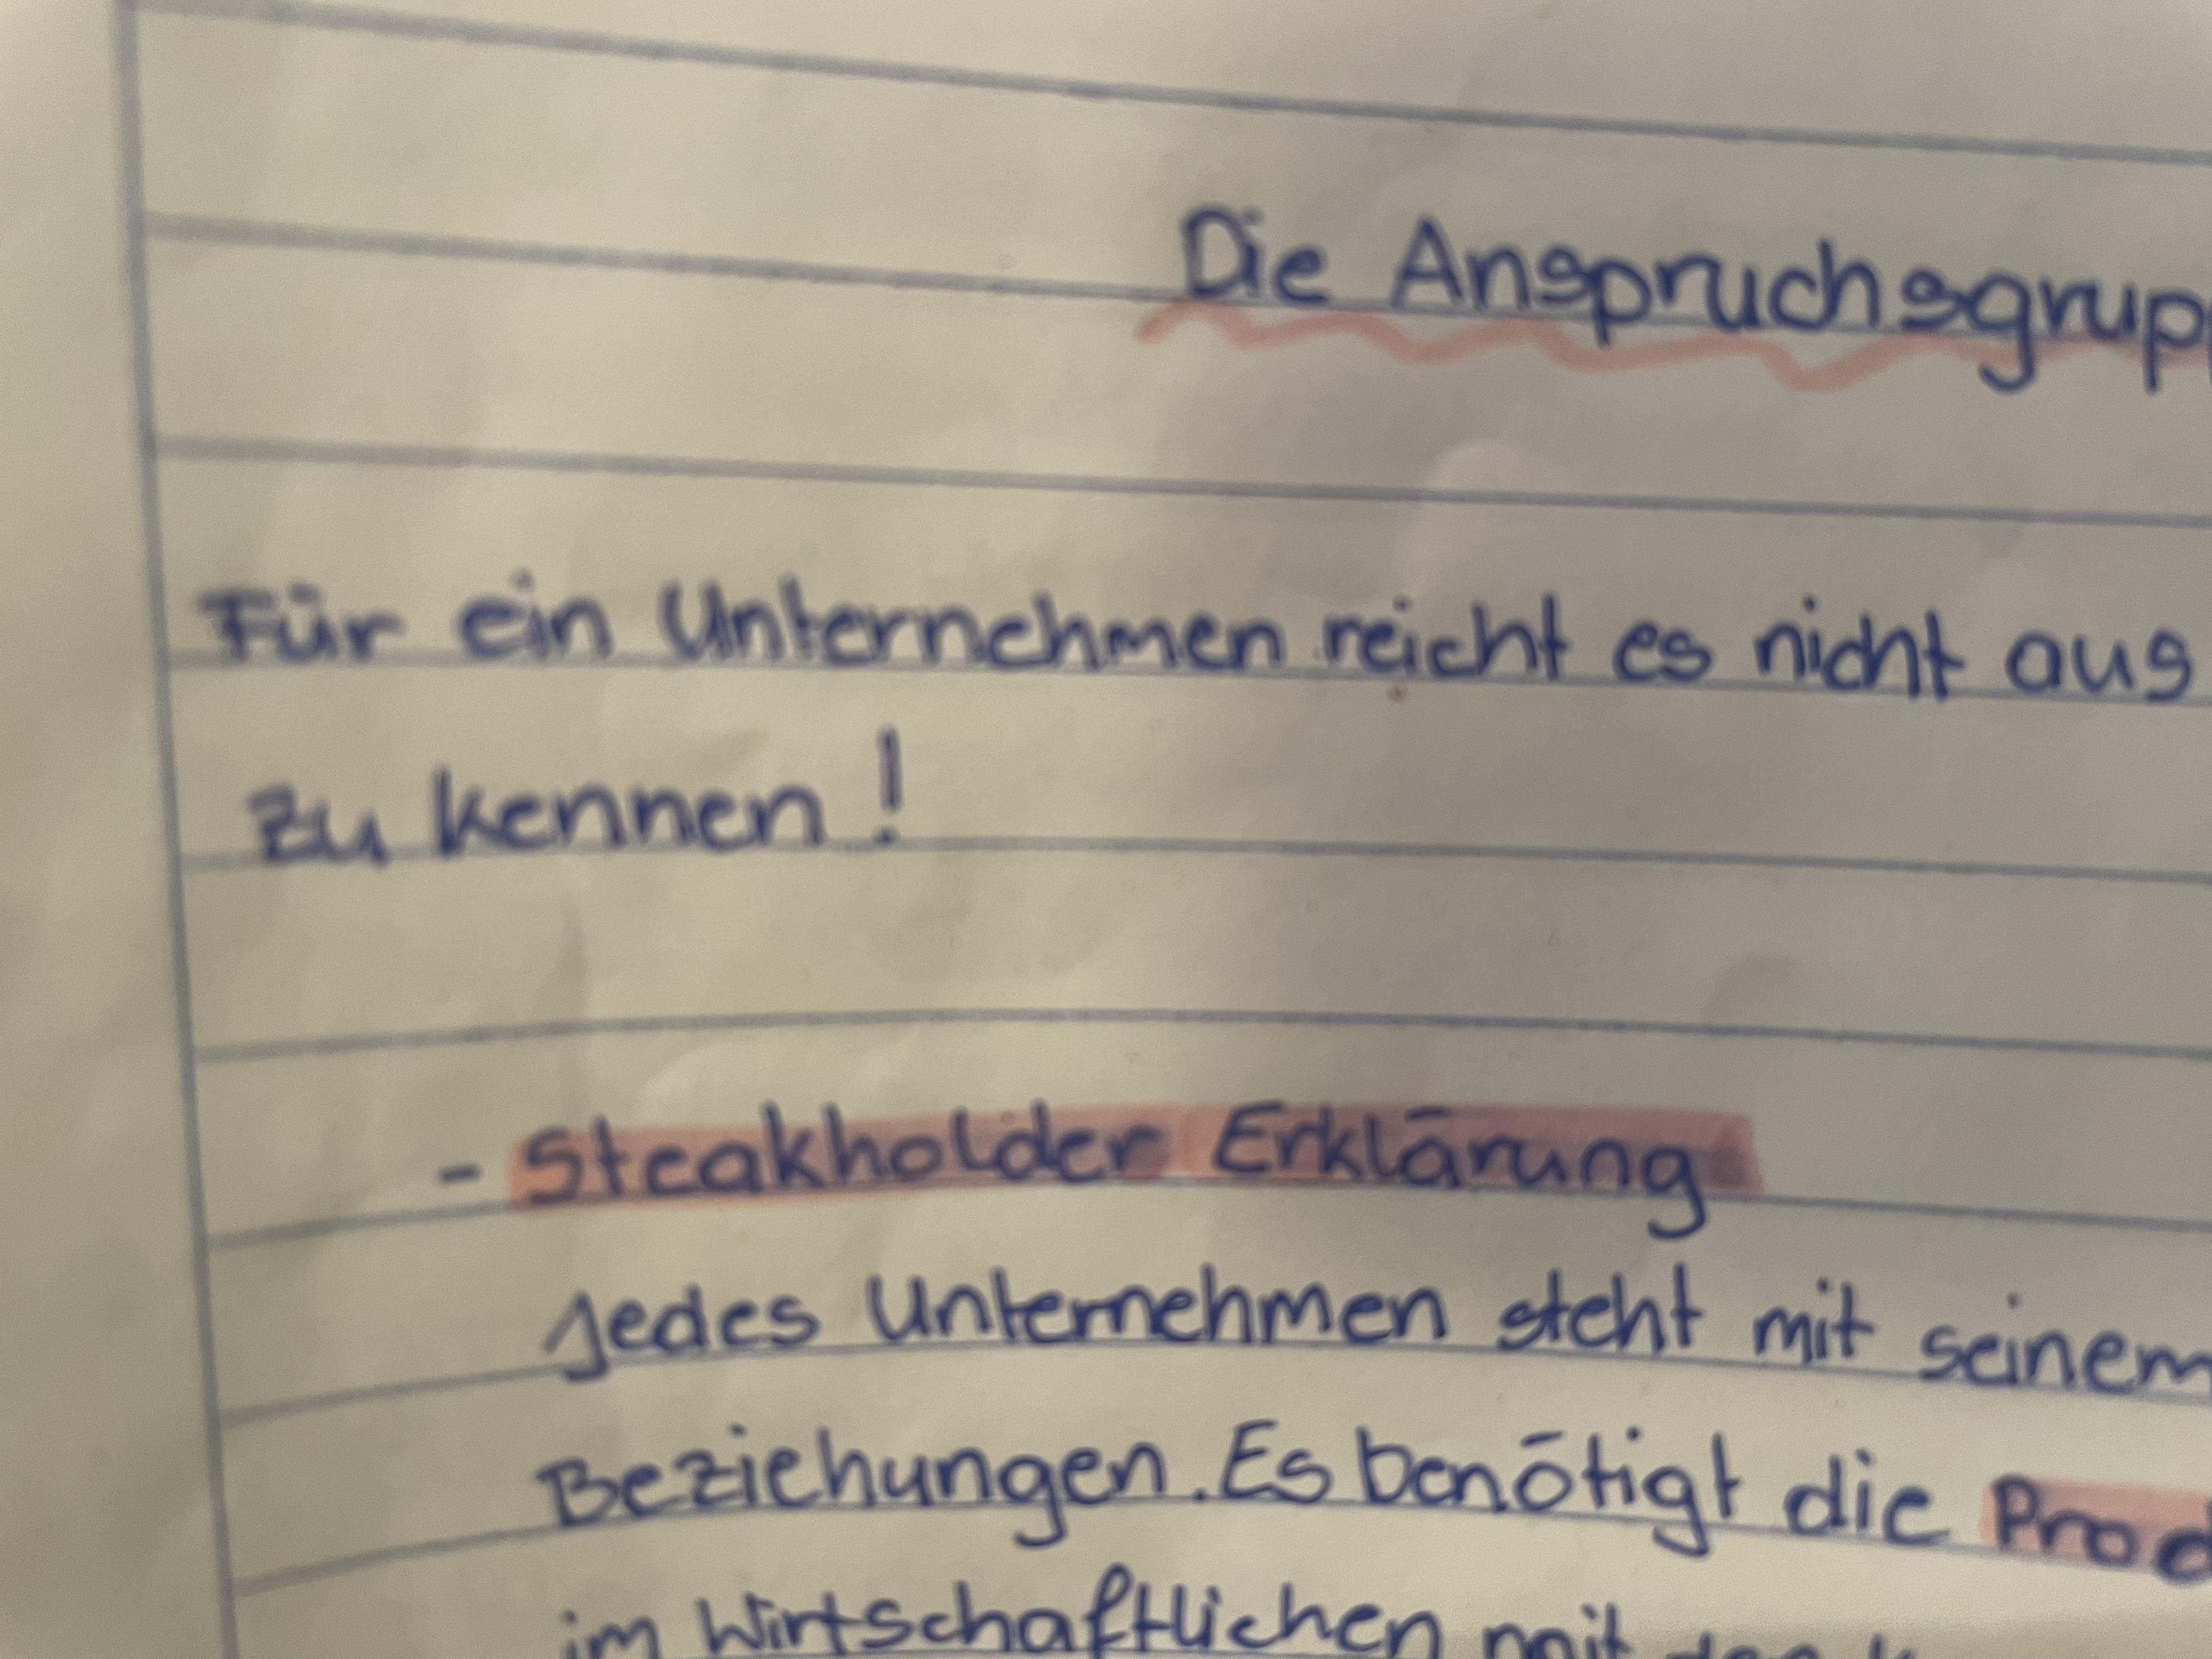 Die Anspruchsgrup
Für ein Unternehmen reicht es nicht aus
zu kennen!
- Steakholder Erklärung
Jedes Unternehmen steht mit seinem
Beziehungen. Es benötigt die Prod
im Wirtschaftlichen mit